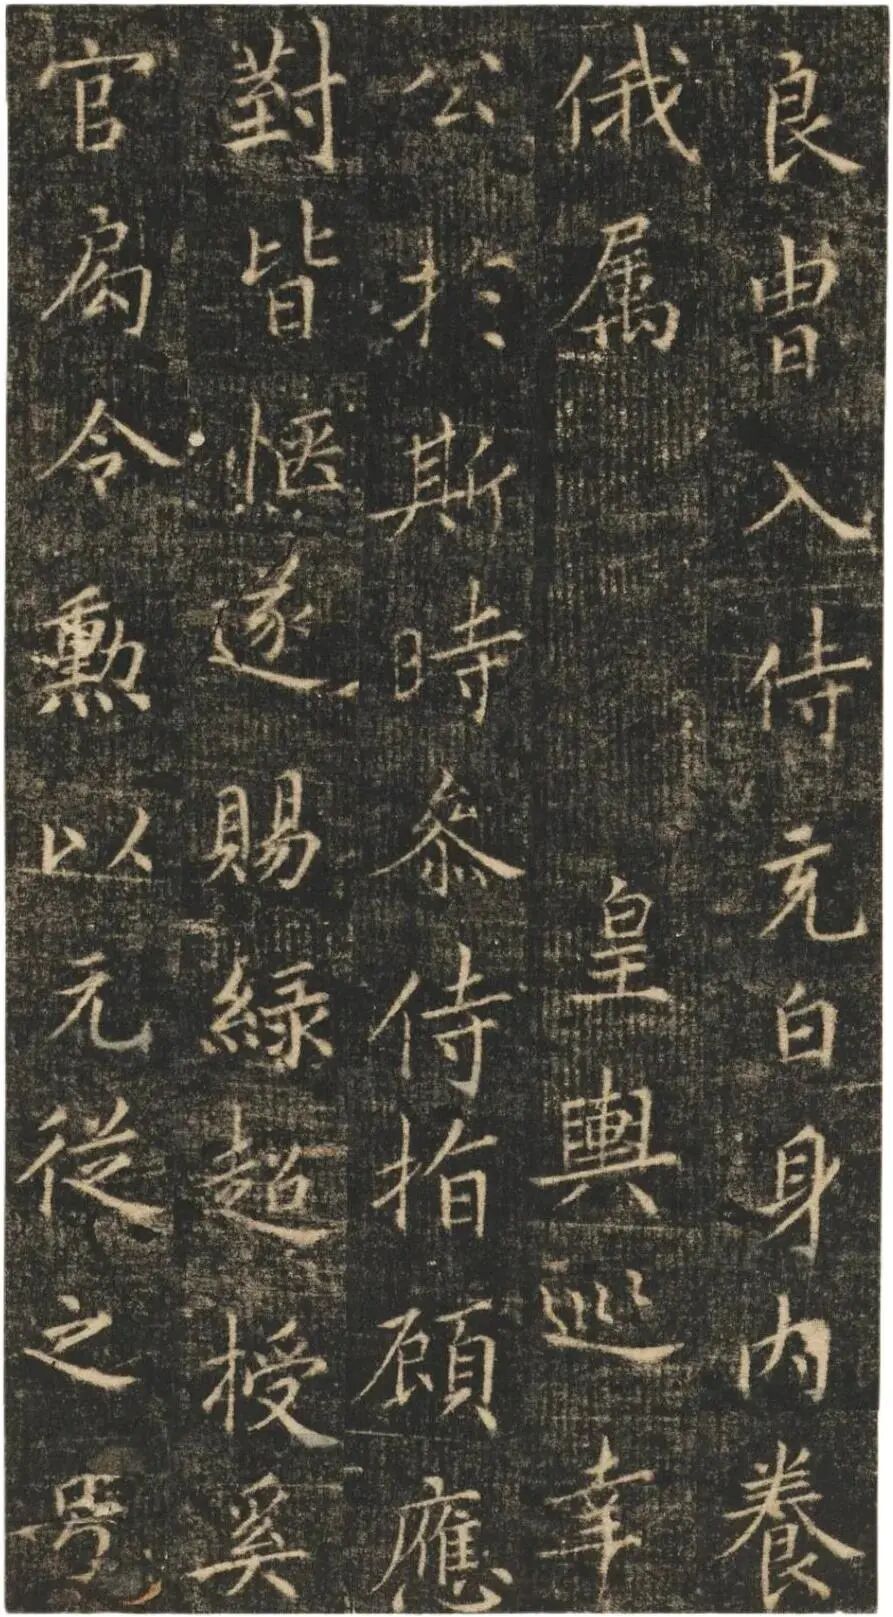 良曹入侍充白身内養
俄属　皇輿巡幸
公於斯時叅侍指顧應
對皆愜遂賜緑超授奚
官局令勳以元從之号